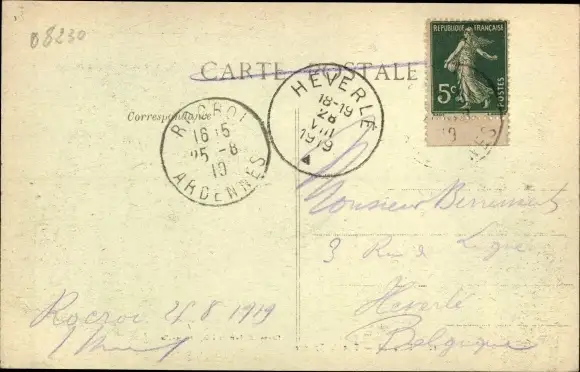 08230
CARTE POSTALE
Correspondance
REPUBLIQUE FRANÇAISE
5c
POSTES
ROCROI
16 15
25 - 8
19
ARDENNES
HEVERLE
18-19
28
VIII
1919
19
NES
Monsieur
3 Rue de
Heverlé
Belgique
Rocroi 25 8 1919